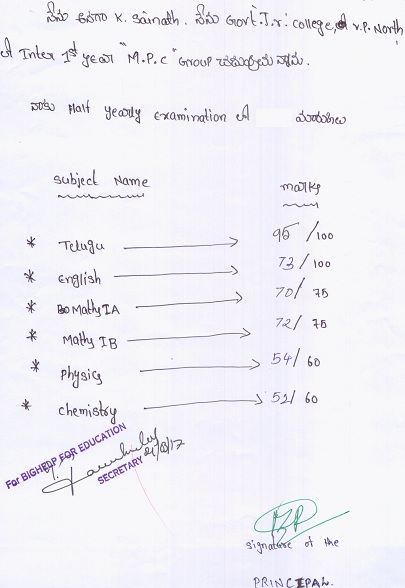 నేను K. Sainath. నేను Govt. Jr. college, V.P. North
Inter 1st year "M.P.C" Group చదువుతున్నాను.
నాకు Half yearly examination లో మార్కులు
Subject Name marks
* Telugu → 95 / 100
* English → 73 / 100
* Maths IA → 70 / 75
* Maths IB → 72 / 75
* Physics → 54 / 60
* chemistry → 51 / 60
For BIGHELP FOR EDUCATION
SECRETARY
signature of the
PRINCIPAL.